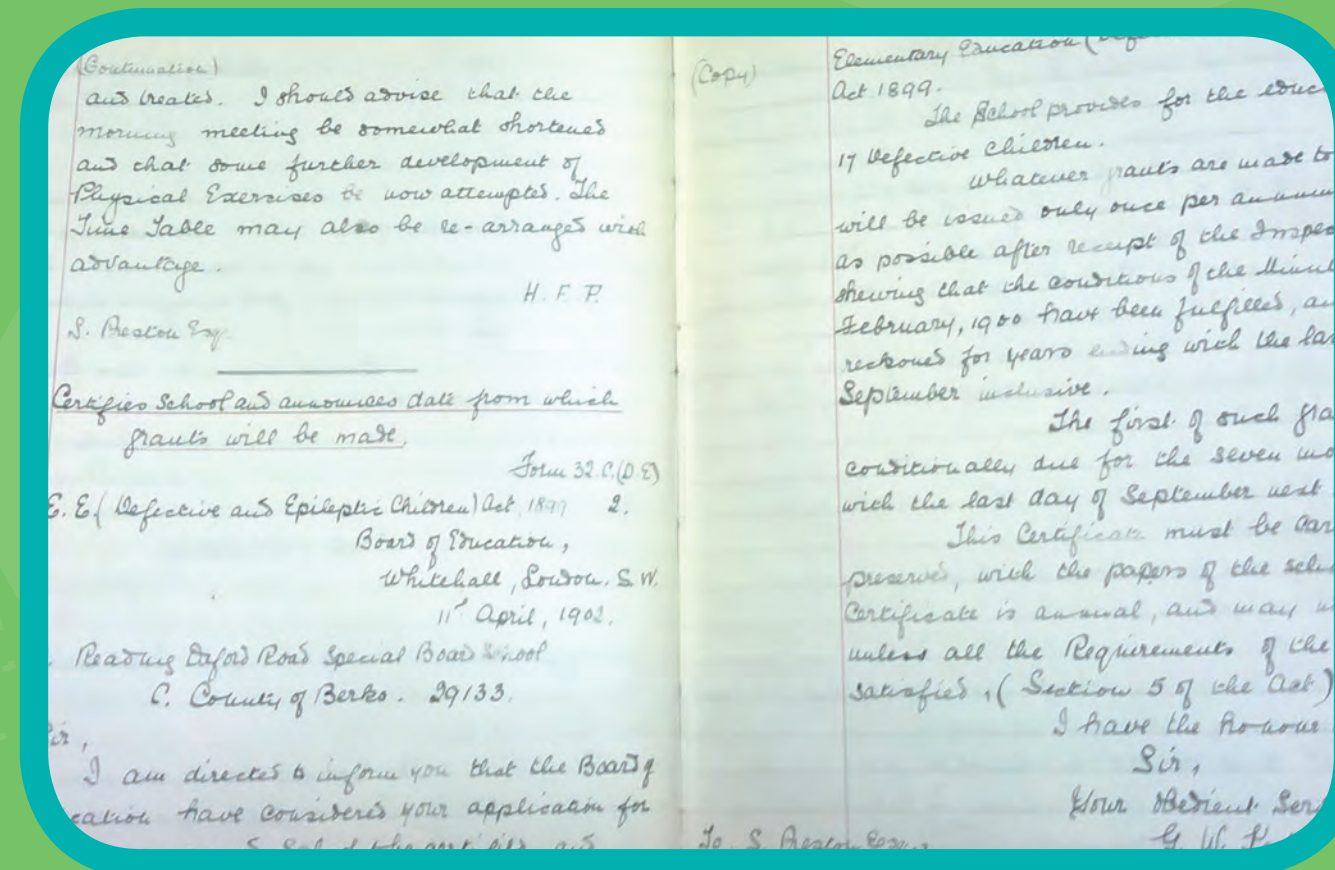 (Continuation)
and treated. I should advise that the
morning meeting be somewhat shortened
and that some further development of
Physical Exercises be now attempted. The
Time Table may also be re-arranged with
advantage.
H. F. P.
S. Preston Esq.
Certifies School and announces date from which
grants will be made.
Form 32.C.(D.E)
E. E. (Defective and Epileptic Children) Act, 1899 2.
Board of Education,
Whitehall, London. S.W.
11th April, 1902.
Reading Oxford Road Special Board School
C. County of Berks. 29/133.
Sir,
I am directed to inform you that the Board of
cation have considered your application for
(Copy)
Elementary Education (
Act 1899.
The School provides for the educ
17 Defective Children.
Whatever grants are made to
will be issued only once per annum
as possible after receipt of the Inspec
shewing that the conditions of the Minut
February, 1900 have been fulfilled, an
reckoned for years ending with the las
September inclusive.
The first of such gra
conditionally due for the seven mo
with the last day of September next
This Certificate must be car
preserved, with the papers of the scho
Certificate is annual, and may
unless all the Requirements of the
satisfied, (Section 5 of the Act)
I have the honour
Sir,
Your Obedient Ser
To S. Preston Esq.
G. W.